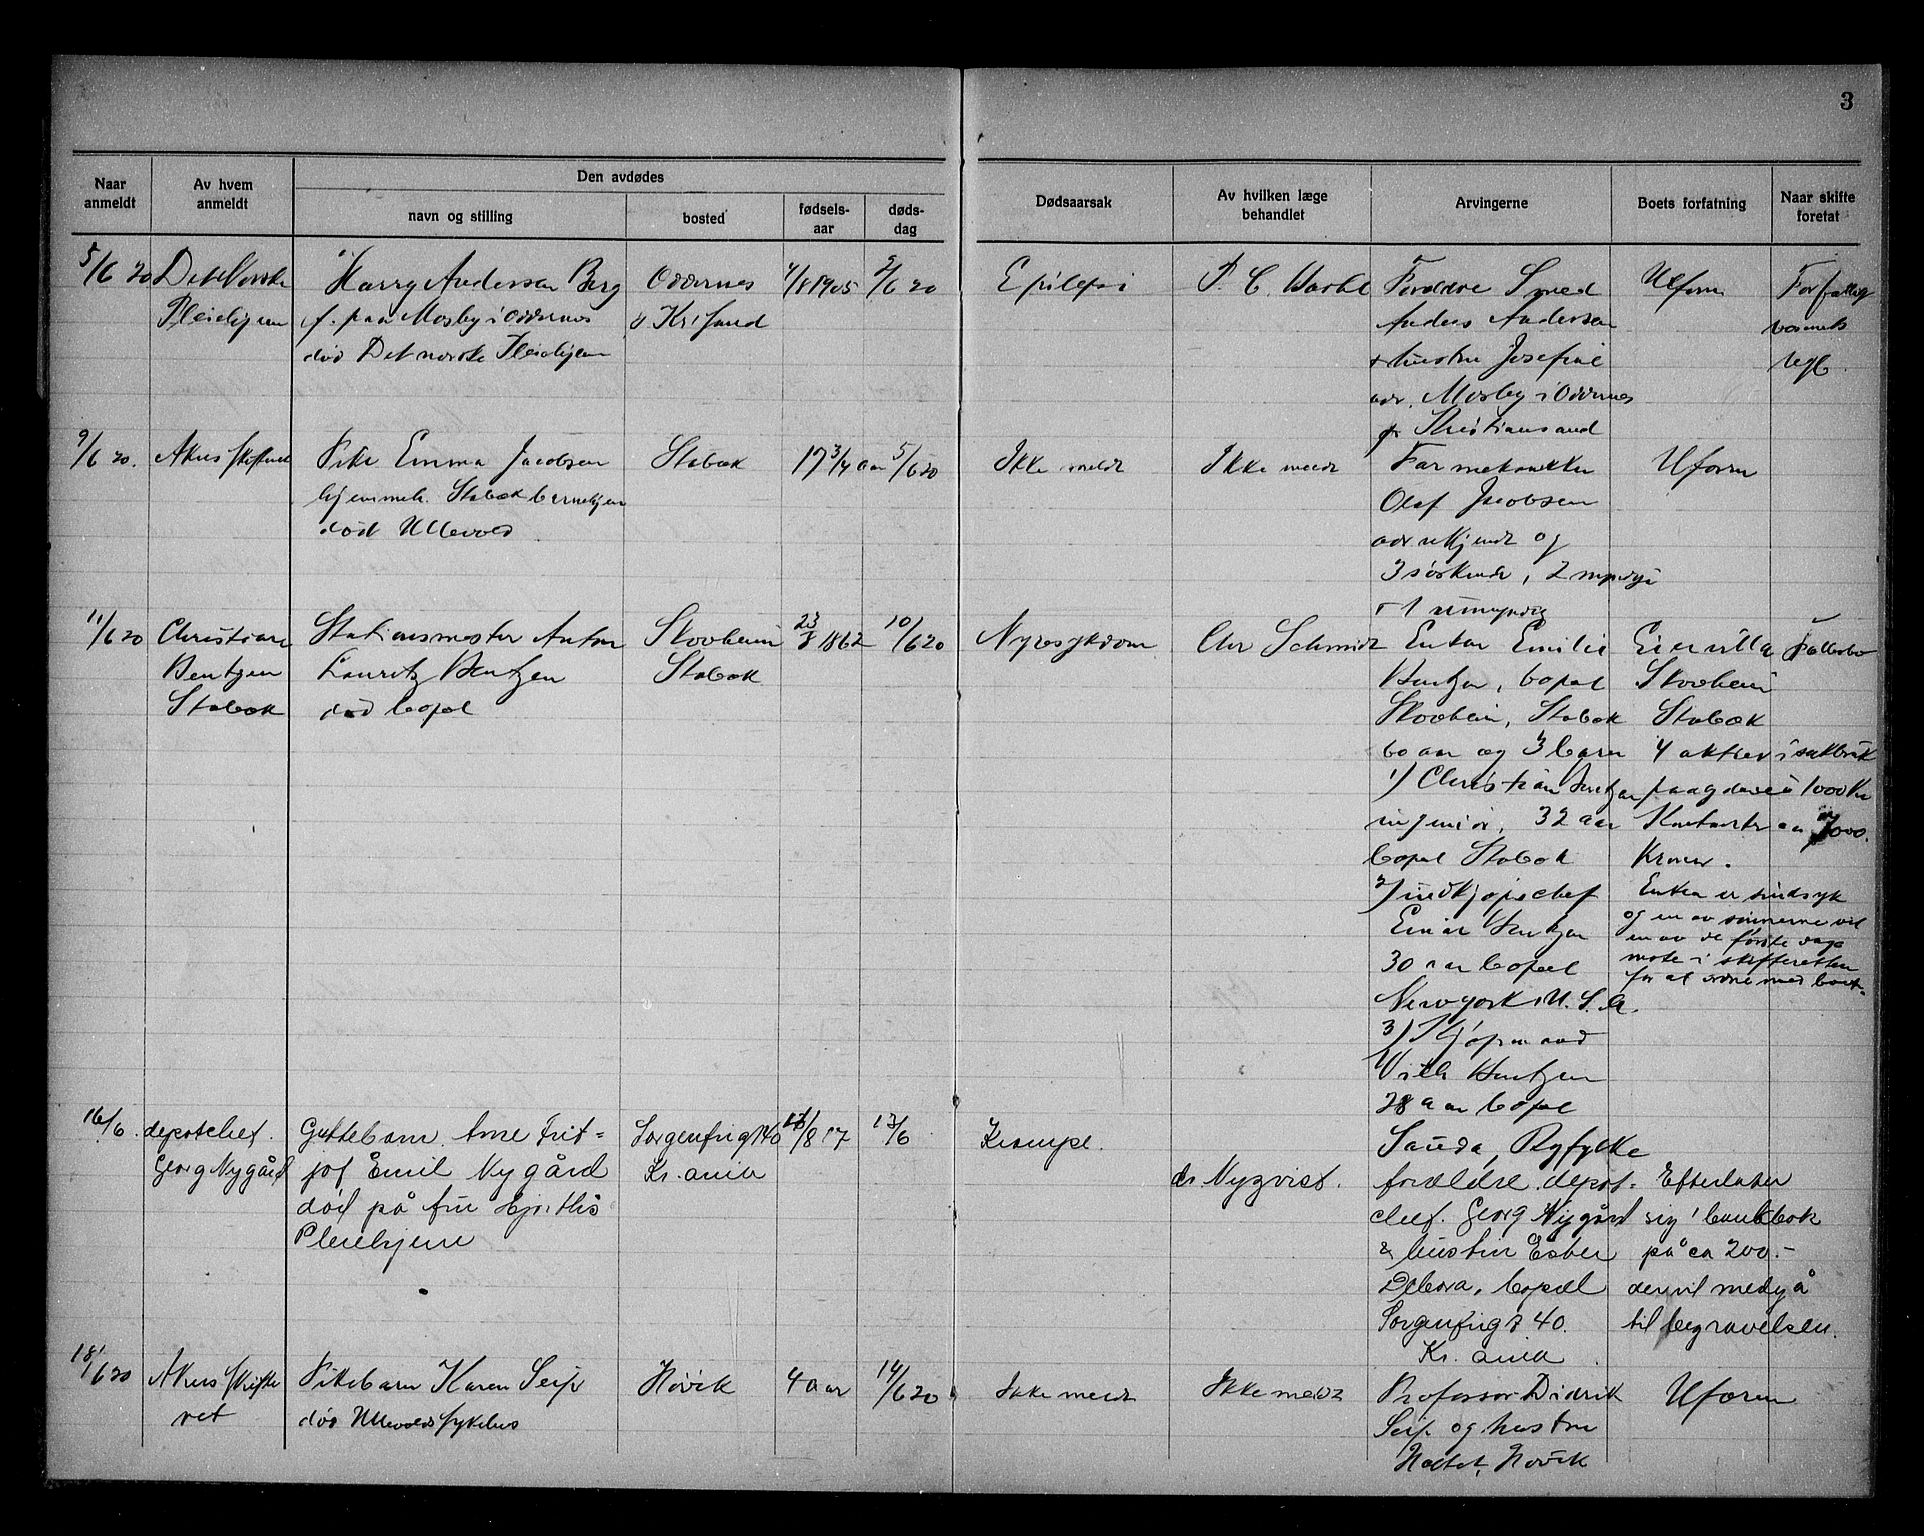 3
Naar anmeldt
Av hvem anmeldt
Den avdødes
navn og stilling
bosted
fødselsaar
dødsdag
Dødsaarsak
Av hvilken læge behandlet
Arvingerne
Boets forfatning
Naar skifte foretat
5/6 20
Det Norske
Pleiehjem
Harry Andersen Berg
f. paa Mosby i Oddernes
død Det norske Pleiehjem
Oddernes
Kr. sand
4/8 1905
2/6 20
Epilepsi
P. C.
Forældre Smed
Anders Andersen
+ hustru Josefine
adr. Mosby i Oddernes
pr Kristiansand
Uform
9/6 20.
Akers skifteret
Pike Emma Jacobsen
hjemmeh. Stabæk barnehjem
død Ullevold
Stabæk
17 3/4 aar
5/6 20
Ikke meldt
Ikke meldt
Far mekaniker
Olaf Jacobsen
adr. ukjendt og
3 søskende, 2 myndige
+ 1 umyndig
Uform
11/6 20
Christian
Bentzen
Stabæk
Stationsmester Anton
Lauritz Bentzen
død bopel
Skovheim
Stabæk
23/8 1862
10/6 20
Nyresykdom
Chr Schmidt
Enken Emilie
Bentzen, bopæl
Skovheim, Stabæk
60 aar og 3 barn
1) Christian Bentzen
ingeniør, 32 aar
bopæl Stabæk
2) indkjøpschef
Einar Bentzen
30 aar bopæl
New york U. S. A.
3) Kjøpmand
Vilh Bentzen
28 aar bopæl
Sauda, Ryfylke
Eier villa
Skovheim
Stabæk
4 aktier i
paa 1000 Kr
7000.
Kroner.
Enken er sindsyk
og en av sønnerne vil
en av de første dage
møte i skifteretten
for at ordne med boet.
16/6.
depotchef.
Georg Nygård
Guttebarn. Arne Frit=
jof Emil Nygård
död på fru Hjorths
Pleiehjem
Sorgenfrigt 40
Kr. ania
/8 17
13/6
Krampe.
dr Nyqvist.
forældre. depot=
chef. Georg Nygård
& hustru Ester
Debora, bopæl
Sorgenfrigt 40.
Kr. ania.
Efterlater
sig 1 bankbok
på ca 200.-
der vil medgå
til begravelsen.
18/6 20
Akers skifte
ret
Pikebarn Karen Seip
død Ullevolds sykehus
Høvik
4 aar
14/6 20
Ikke meldt
Ikke meldt
Professor Didrik
Seip og hustru
Høvik
Uform